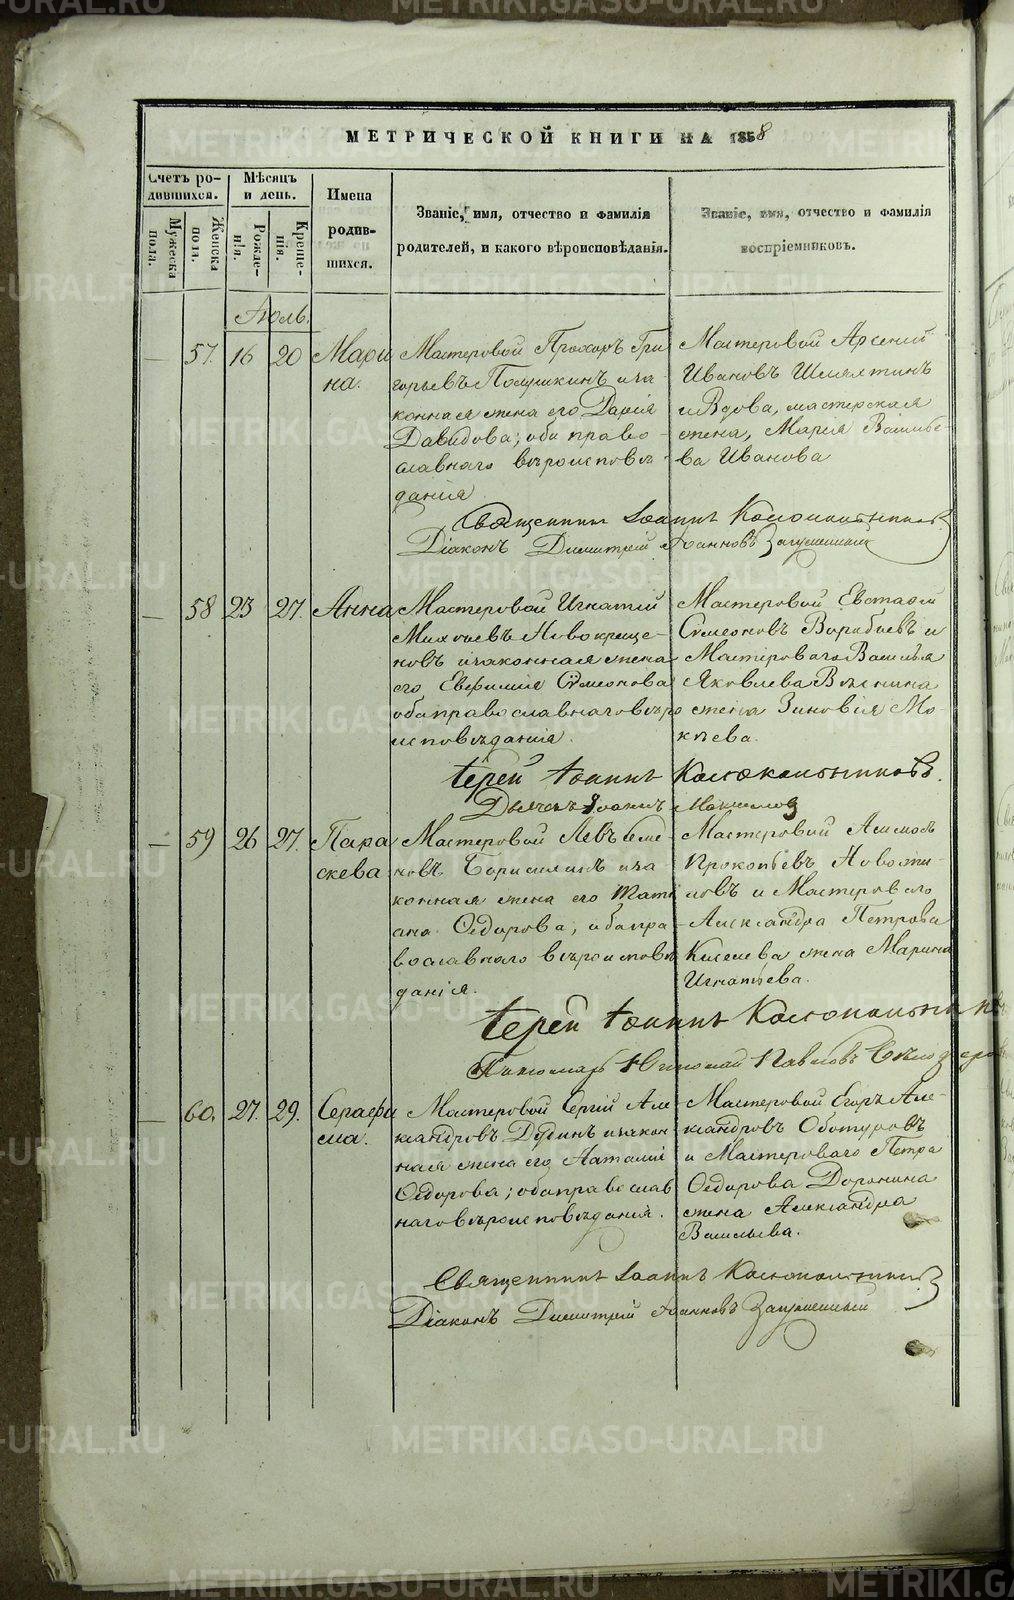 МЕТРИЧЕСКОЙ КНИГИ НА 1858
Счетъ ро-
дившихся.
Мужеска
пола.
Женска
пола.
Мѣсяцъ
и день.
Рожде-
нія.
Креще-
нія.
Имена
родив-
шихся.
Званіе, имя, отчество и фамилія
родителей, и какого вѣроисповѣданія.
Званіе, имя, отчество и фамилія
воспріемниковъ.
Іюль.
— 57. 16 20 Мари
на.
Мастеровой Прохоръ Гри
горьевъ и за
конная жена его Дарія
Давидова; оба право-
славнаго вѣроисповѣ-
данія
Мастеровой Арсений
Ивановъ Шмялтинъ
и Вдова, мастерская
жена, Марія Василье-
ва Иванова
Священникъ Іоаннъ
Діаконъ Димитрій Іоанновъ
— 58 23 27. Анна
Мастеровой Игнатій
Михѣевъ Новокреще-
новъ и законная жена
его Евфимія Симеонова
оба православнаго вѣро
исповѣданія.
Мастеровой Евстафій
Симеоновъ Воробьевъ и
Мастероваго Василья
Яковлева жена Зиновія Мо-
кѣева.
Іерей Іоаннъ
Дьячекъ Іоаннъ
— 59 26 27. Пара
скева
Мастеровой Левъ Семе
новъ и за
конная жена его Тати
ана Ѳедорова; оба пра-
вославнаго вѣроисповѣ
данія.
Мастеровой
Прокопьевъ Новожи-
ловъ и Мастероваго
Александра Петрова
Киселева жена Марина
Игнатьева.
Іерей Іоаннъ
Пономарь Николай Павловъ
— 60. 27. 29. Серафи
ма.
Мастеровой Сергій Але-
ксандровъ и закон-
ная жена его Наталія
Ѳедорова; оба православ
наго вѣроисповѣданія.
Мастеровой Егоръ Але-
ксандровъ Оботуровъ
и Мастероваго Петра
Ѳедорова Доронина
жена Александра
Васильева.
Священникъ Іоаннъ
Діаконъ Димитрій Іоанновъ
METRIKI.GASO-URAL.RU